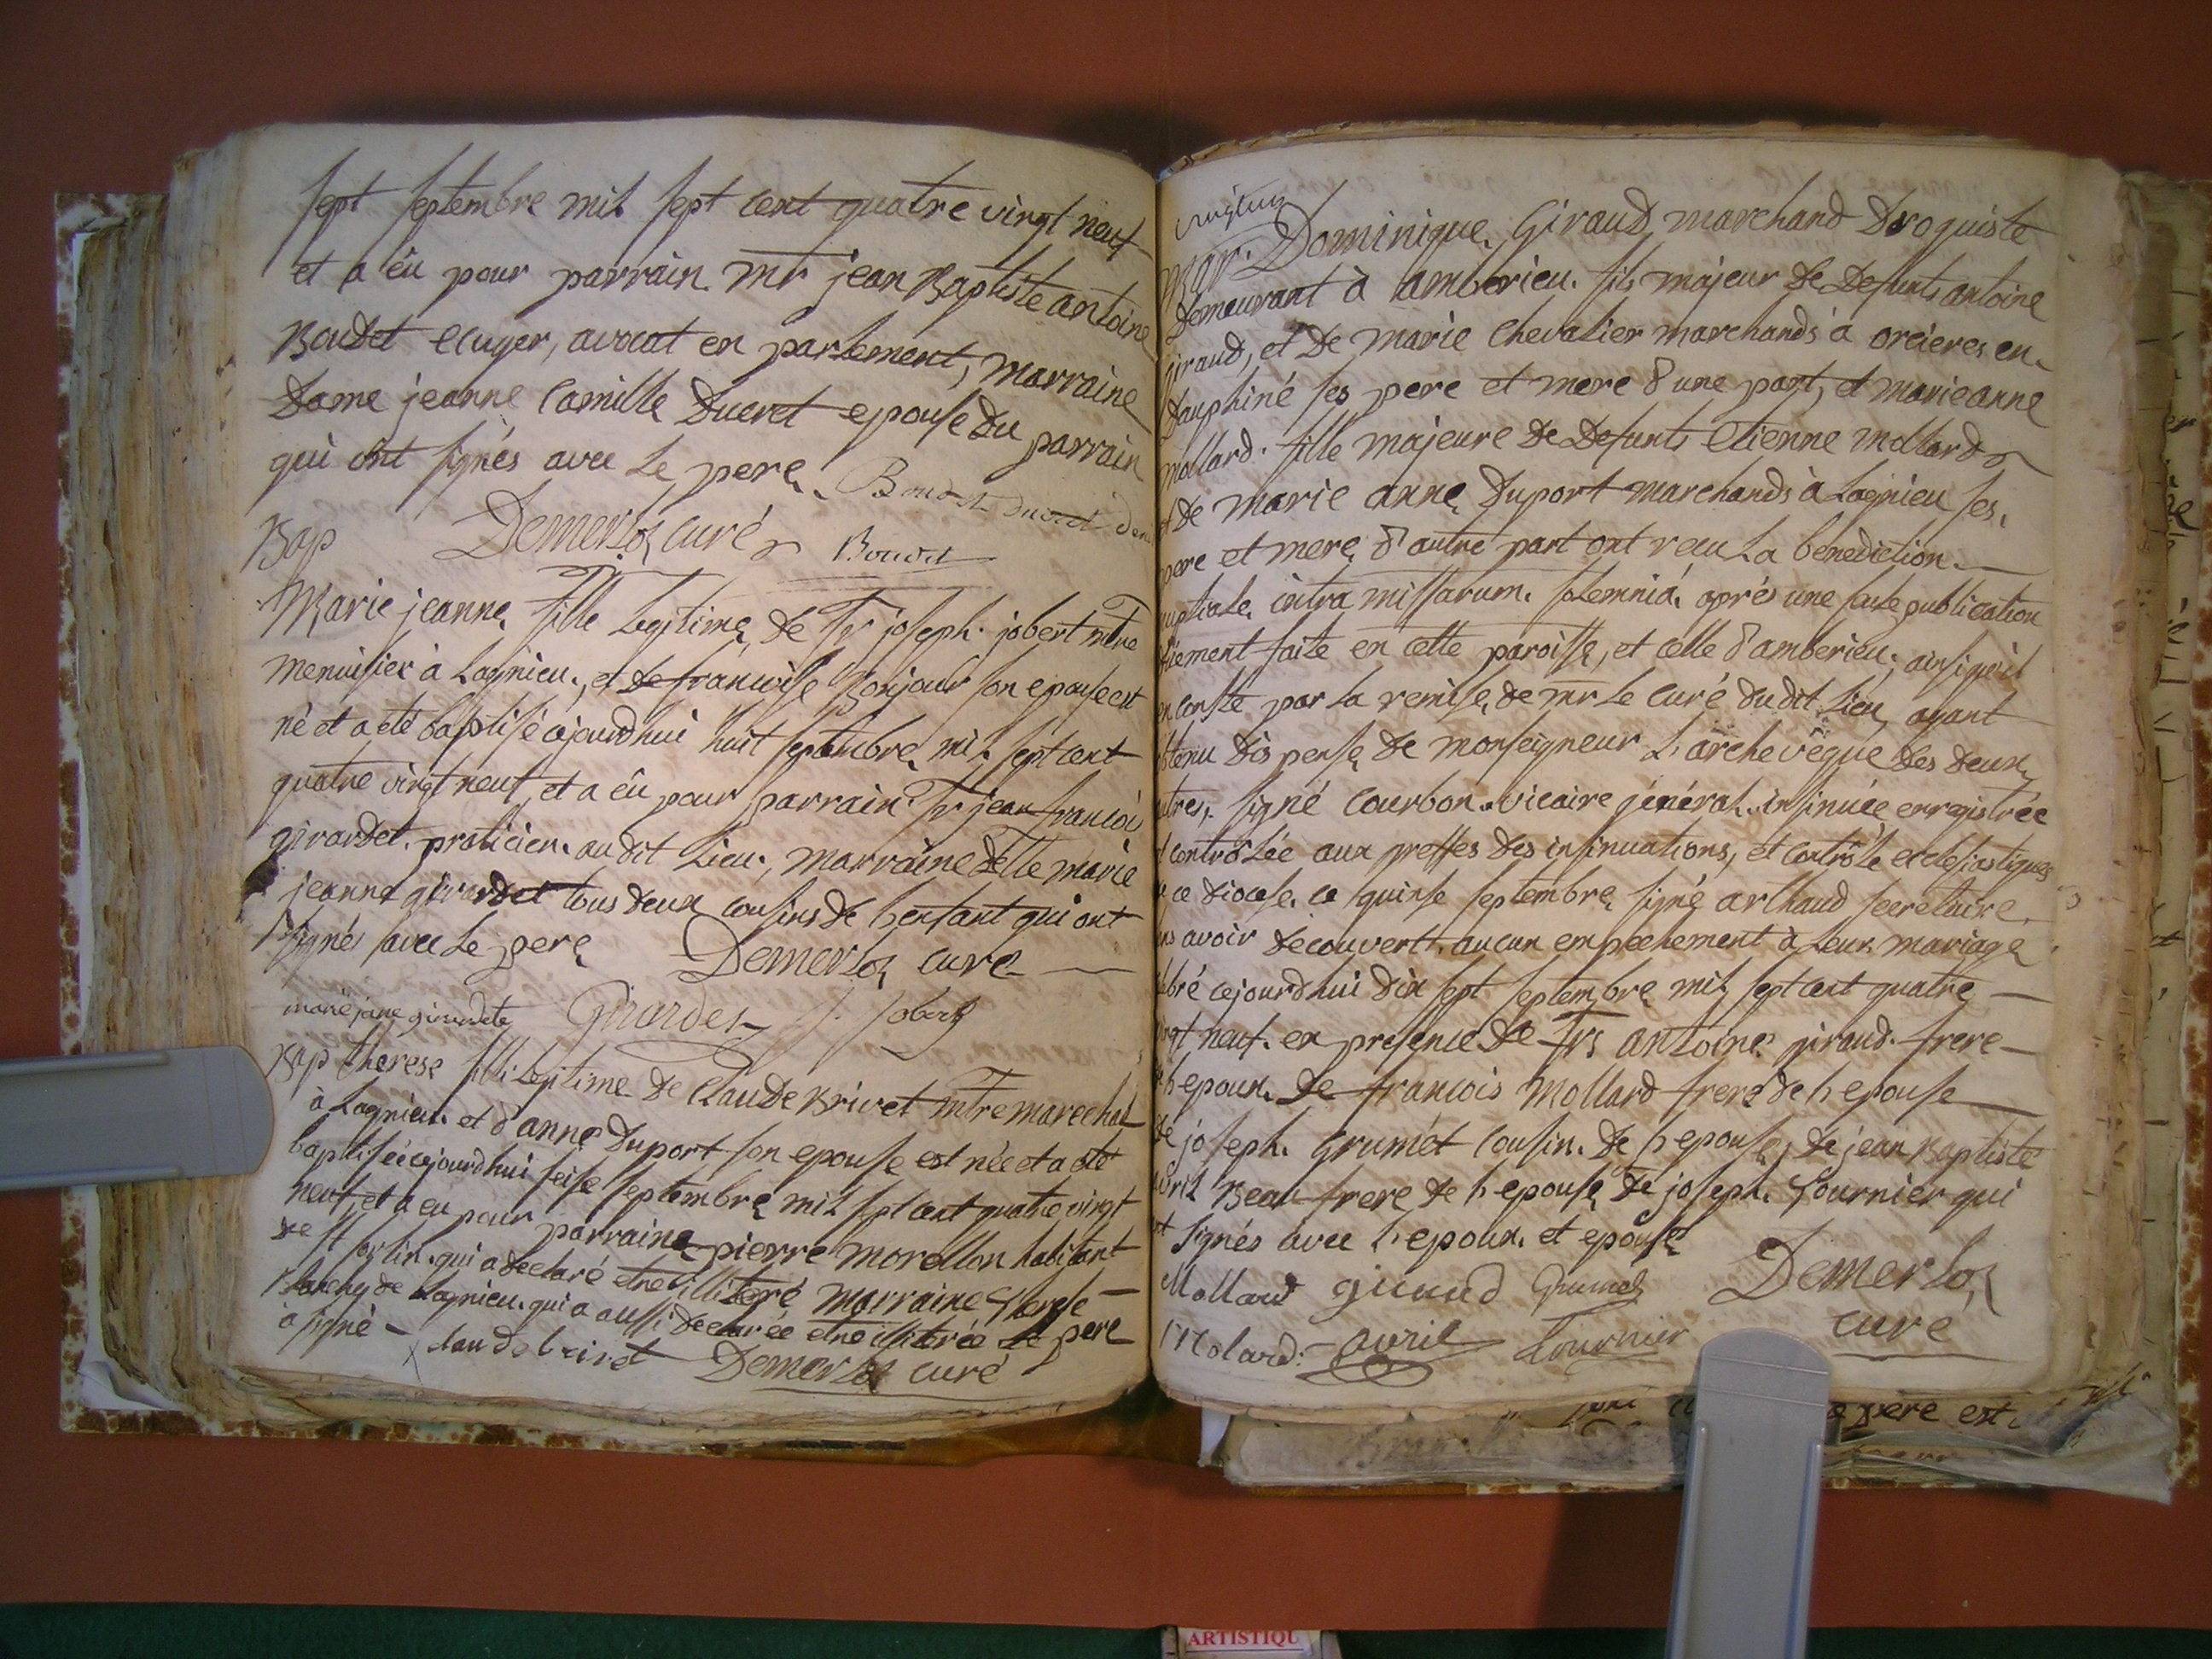 sept septembre mil sept cent quatre vingt neuf
et a èu pour parrain mr jean Baptiste antoine
Boudet ecuyer, avocat en parlement, marraine
dame jeanne Camille Ducret epouse du parrain
qui ont signés avec le pere.
Bap Demerloz curé Boudet
Marie jeanne fille legitime de Sr joseph jobert mtre
menuisier à Lagnieu, et de francoise Bonjour son epouse est
né et a eté baptisé cejourdhui huit septembre mil sept cent
quatre vingt neuf et a èu pour parrain Sr jean francois
girardet praticien audit lieu, marraine delle marie
jeanne girardet tous deux cousins de l'enfant qui ont
signés avec le pere Demerloz curé
marie jane girardete Girardet J. Jobert
Bap therese fille legitime de Claude Brivet mtre marechal
à Lagnieu et d'anne Duport son epouse est née et a eté
baptisée cejourdhui seise septembre mil sept cent quatre vingt
neuf, et a eu pour parraine pierre morellon habitant
de St sorlin qui a declaré etre illiteré marraine therese
de Lagnieu qui a aussi declarée etre illiterée le pere
à signé - claude brivet Demerloz curé
Mar. Dominique Giraud marchand droguiste
demeurant à amberieu fils majeur de defunts antoine
giraud, et de marie Chevalier marchands à orcieres en
dauphiné ses pere et mere d'une part, et marieanne
mollard fille majeure de defunts etienne mollard
et de marie anne Duport marchands à Lagnieu ses
pere et mere d'autre part ont recu la benediction
nuptiale intra missarum solemnia après une seule publication
faite en cette paroisse, et celle d'amberieu, ainsi qu'il
en conste par la remise de mr le curé dudit lieu, ayant
obtenu dispense de monseigneur l'archevêque des deux
autres, signé Courbon vicaire général insinuée enregistrée
et controlée aux greffes des insinuations, et controle ecclesiastiques
de ce diocese ce quinse septembre signé arlhaud secretaire
sans avoir decouvert aucun empechement à leur mariage
celebré cejourdhui dix sept septembre mil sept cent quatre
vingt neuf en presence de Srs antoine giraud frere
de l'epoux de francois Mollard frere de l'epouse
de joseph Grumet cousin de l'epouse, de jean Baptiste
avril Beau frere de l'epouse de joseph fournier qui
ont signés avec l'epoux et epouse
Mollard giraud Grumet Demerloz
Molard avril Fournier curé
pere est
ARTISTIQU